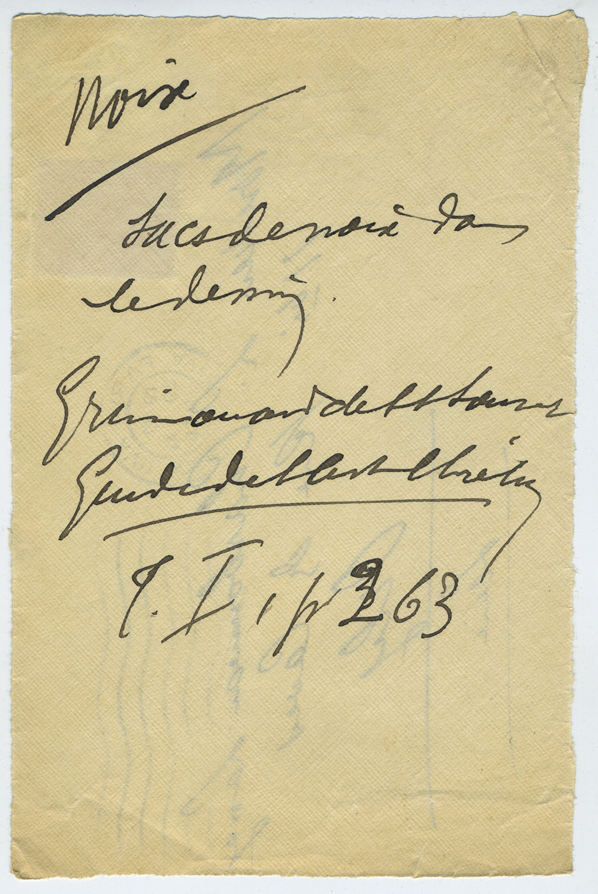 Noix
Sacs de noix dans
le dessin.
Grimouard de St Laurent
Guide de l'art chrétien
T. I, p 263